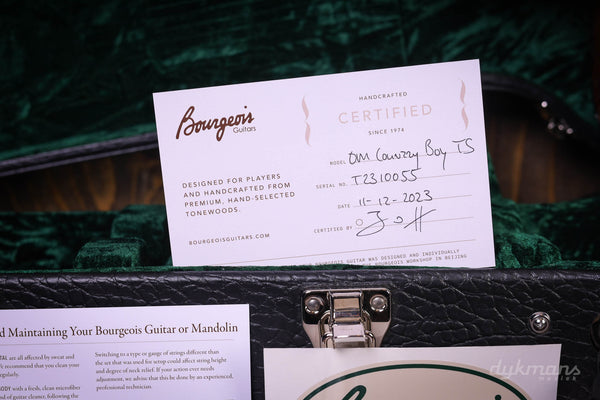 Bourgeois
Guitars
DESIGNED FOR PLAYERS
AND HANDCRAFTED FROM
PREMIUM, HAND-SELECTED
TONEWOODS.
BOURGEOISGUITARS.COM
HANDCRAFTED
CERTIFIED
SINCE 1974
MODEL OM Country Boy TS
SERIAL NO. T2310055
DATE 11-12-2023
CERTIFIED BY
BOURGEOIS GUITAR WAS DESIGNED AND INDIVIDUALLY
BOURGEOIS WORKSHOP IN BEIJING
d Maintaining Your Bourgeois Guitar or Mandolin
TAL are all affected by sweat and
We recommend that you clean your
egularly.
BODY with a fresh, clean microfiber
d of guitar cleaner, following the
Switching to a type or gauge of strings different than
the set that was used for setup could affect string height
and degree of neck relief. If your action ever needs
adjustment, we advise that this be done by an experienced,
professional technician.
dykmans
muziek